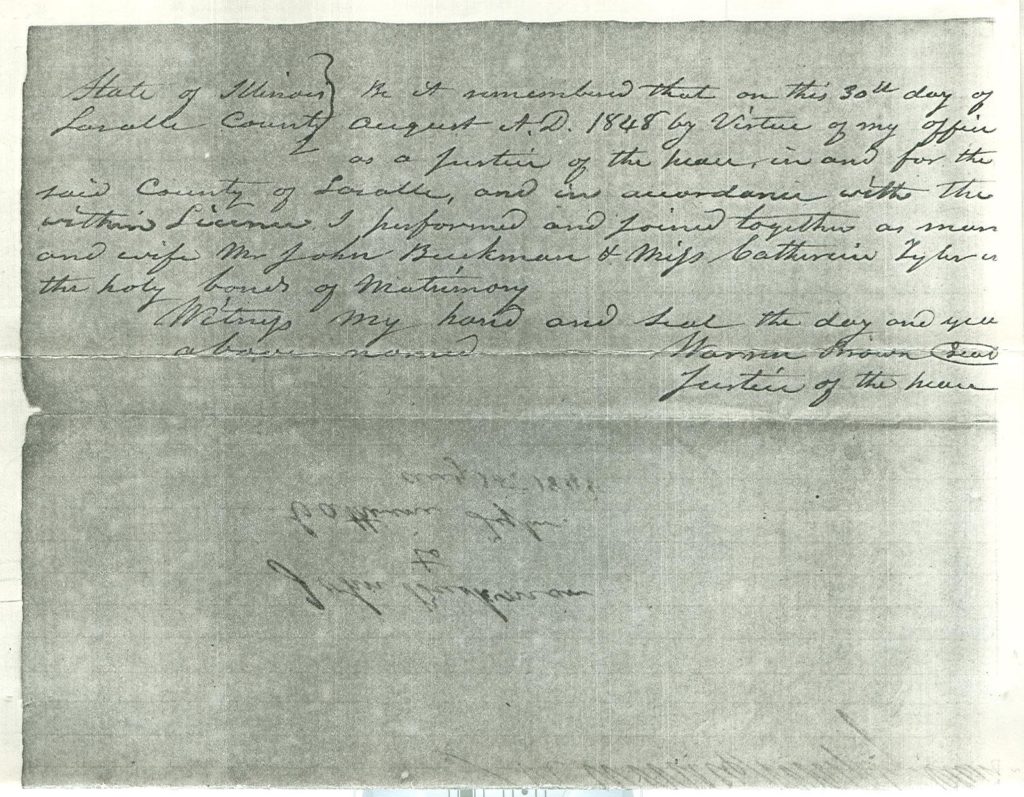 State of Illinois } Be it remembered that on this 30th day of
Lasalle County } August A.D. 1848 by Virtue of my office
as a Justice of the peace, in and for the
said County of Lasalle, and in accordance with the
within Licence I performed and joined together as man
and wife Mr John Buckman & Miss Catherine Tyler in
the holy bonds of Matrimony
Witness my hand and seal the day and year
above named Warren Brown Seal
Justice of the peace
John Buckman
to
Catherine Tyler
Aug 1848